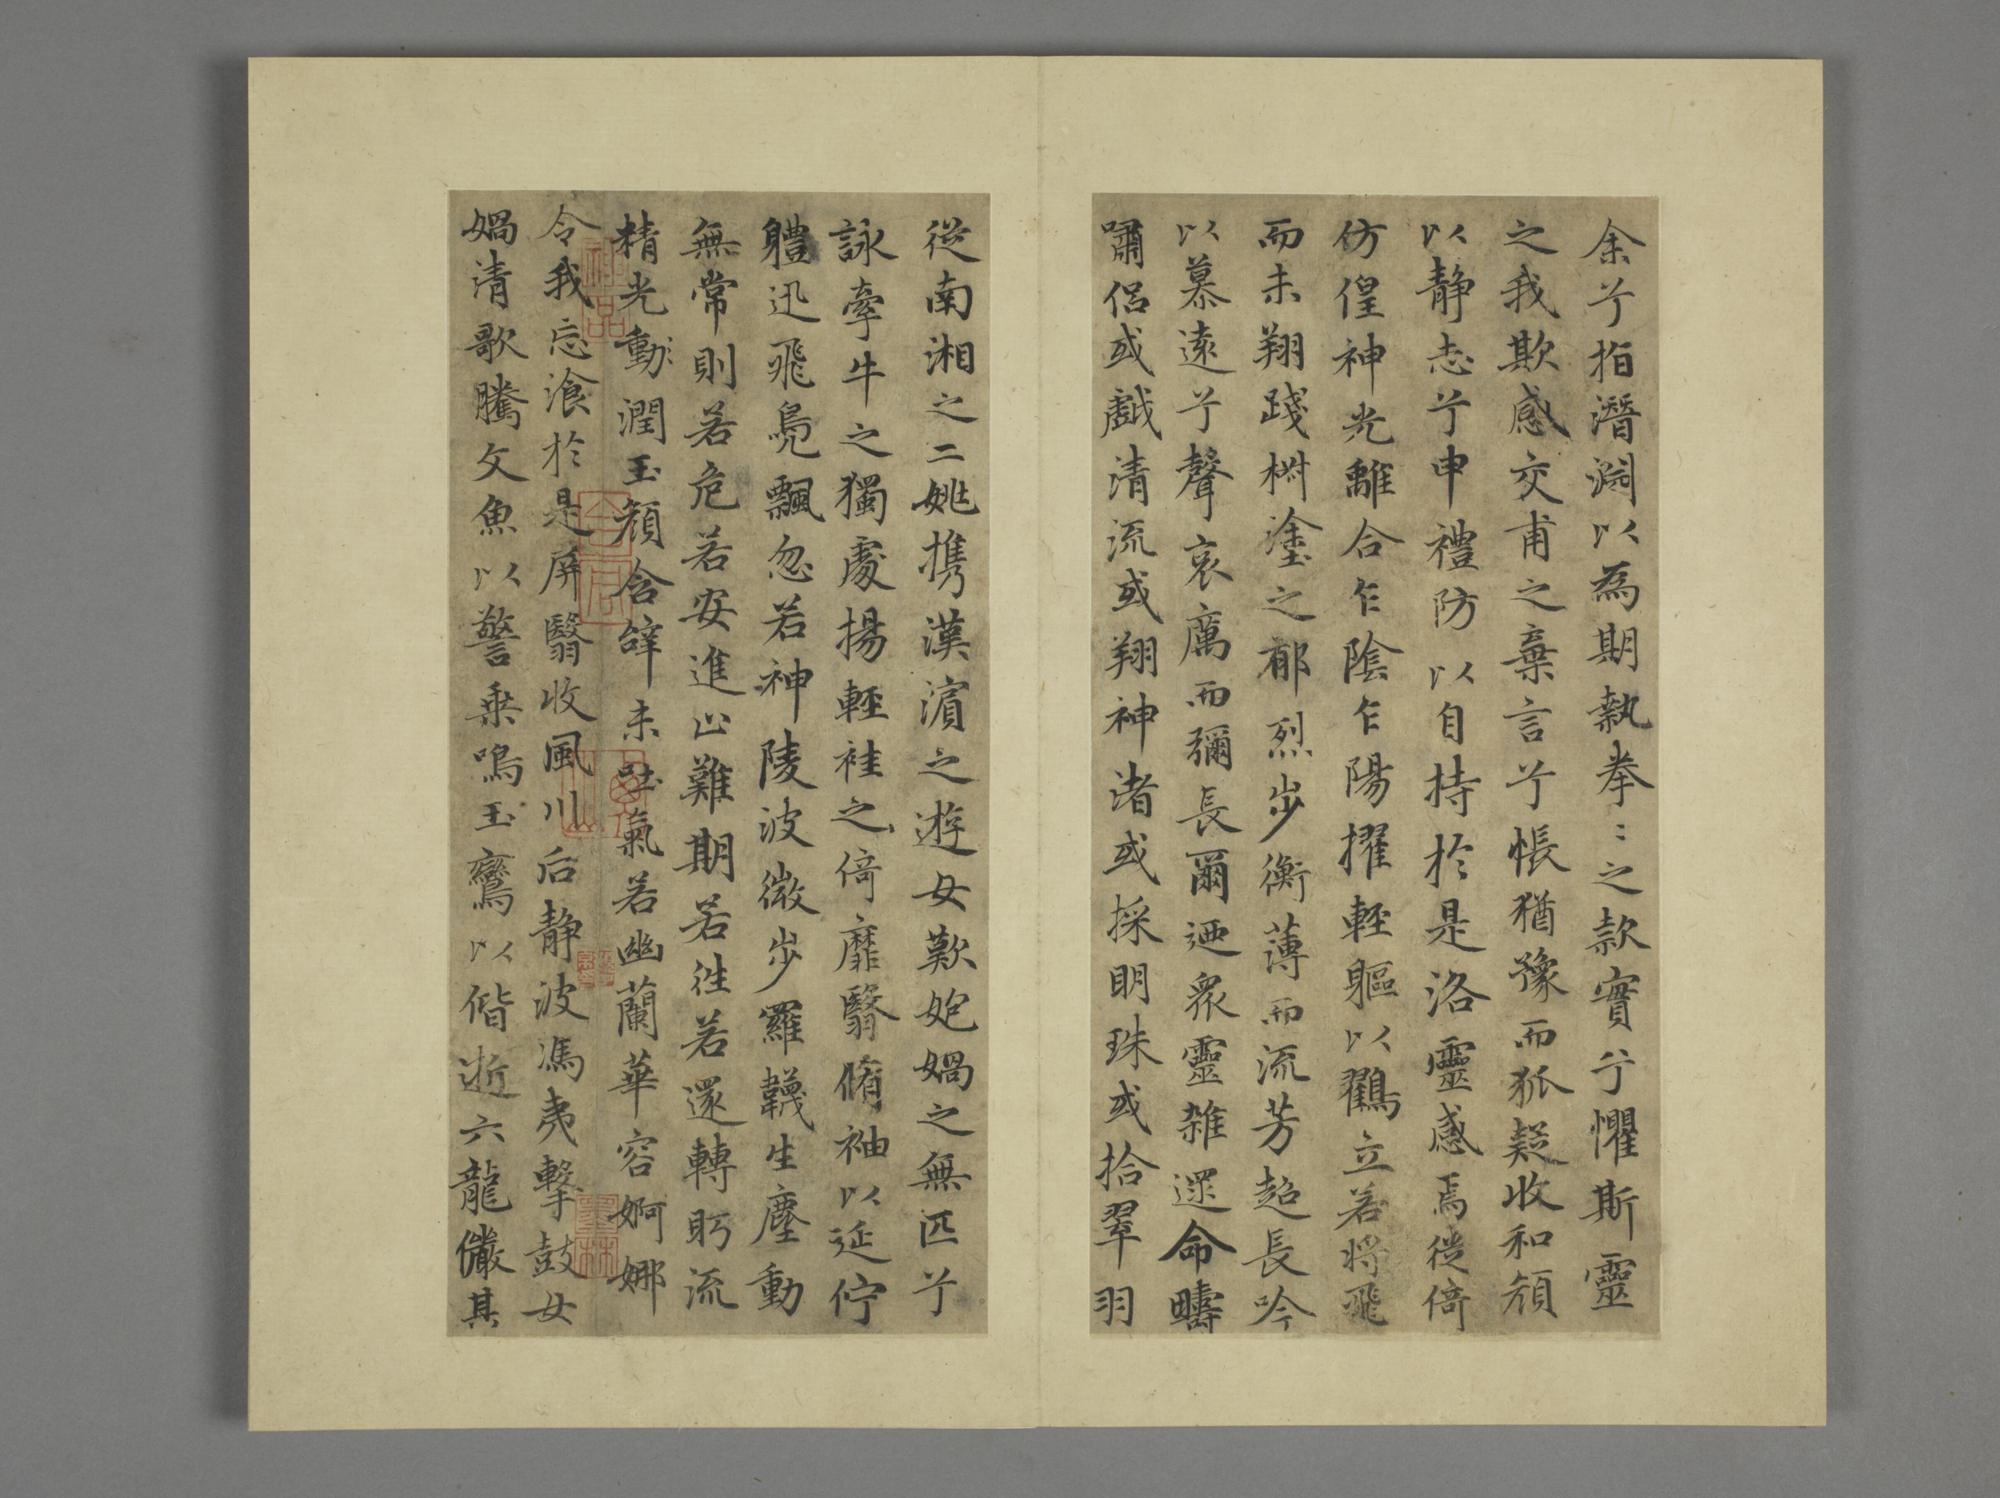 余兮指潛淵以為期執拳〻之款實兮懼斯靈
之我欺感交甫之棄言兮悵猶豫而狐疑收和顏
以靜志兮申禮防以自持於是洛靈感焉徙倚
仿偟神光離合乍陰乍陽擢輕軀以鸖立若將飛
而未翔踐椒塗之郁烈步蘅薄而流芳超長吟
以慕遠兮聲哀厲而彌長爾迺眾靈雜遝命疇
嘯侶或戲清流或翔神渚或採明珠或拾翠羽
從南湘之二姚携漢濱之遊女歎匏媧之無匹兮
詠牽牛之獨處揚輕袿之倚靡翳脩袖以延佇
軆迅飛鳧飄忽若神陵波微步羅韈生塵動
無常則若危若安進止難期若往若還轉眄流
精光動〻潤玉顏含辝未吐氣若幽蘭華容婀娜
令我忘湌於是屏翳收風川后靜波馮夷擊鼓女
媧清歌騰文魚以警乘鳴玉鸞以偕逝六龍儼其
神品
墨林